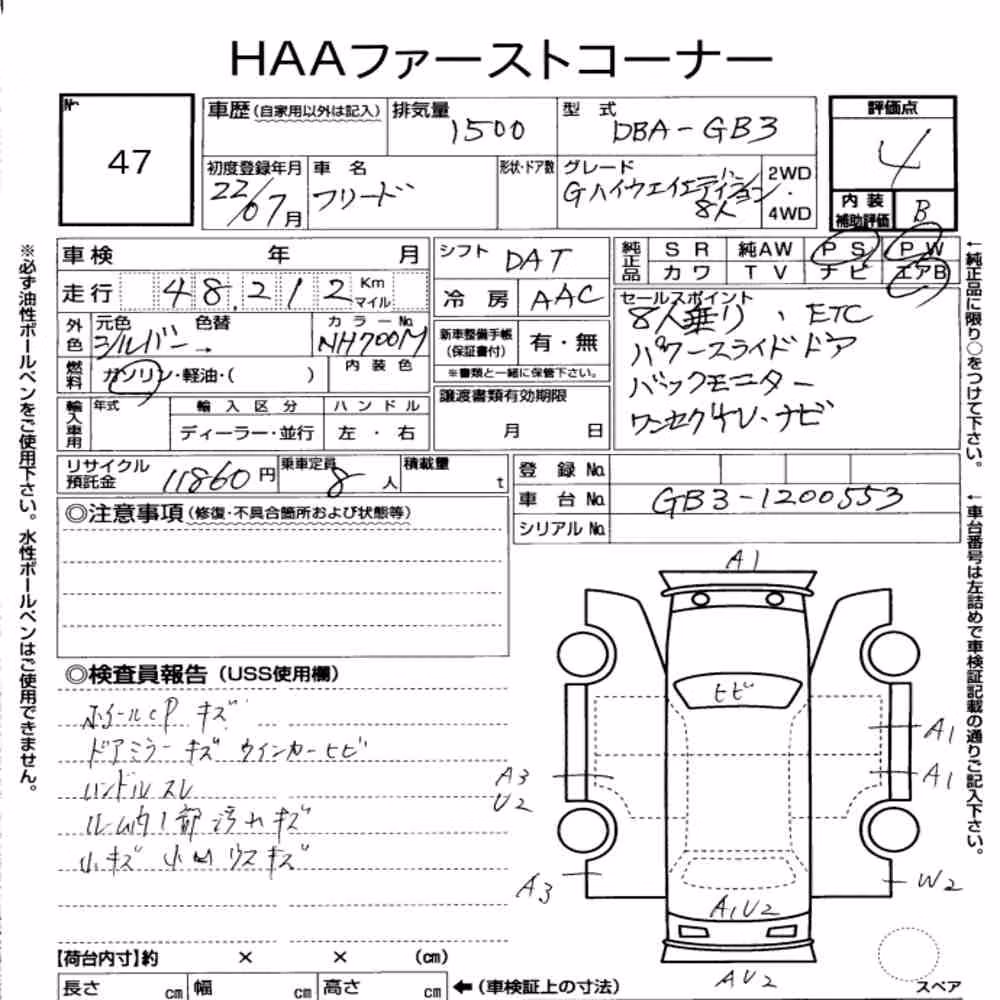 HAAファーストコーナー
№
47
車歴(自家用以外は記入)
排気量
1500
型 式
DBA-GB3
評価点
4
初度登録年月
22/07月
車 名
フリード
形状・ドア数
グレード
Gハイウェイエディション
8人
2WD
・
4WD
内 装
補助評価
B
車検 年 月
シフト
DAT
純正品
SR 純AW PS PW
カワ TV ナビ エアB
走行
48,212
Km
マイル
冷 房
AAC
セールスポイント
8人乗り、ETC
パワースライドドア
バックモニター
ワンセグTV・ナビ
外色
元色
色替
シルバー→
カラーNo.
NH700M
新車整備手帳
(保証書付)
有・無
※書類と一緒に保管下さい。
燃料
ガソリン・軽油・( )
内 装 色
輸入車用
年式
輸 入 区 分
ハ ン ド ル
ディーラー・並行
左 ・ 右
譲渡書類有効期限
月 日
リサイクル
預託金
11860円
乗車定員
8人
積載量
t
登 録 No.
車 台 No.
GB3-1200553
シリアル No.
◎注意事項(修復・不具合箇所および状態等)
◎検査員報告(USS使用欄)
ホイールCP キズ
ドアミラー キズ ウインカーヒビ
ハンドルスレ
ルーム内1部汚れキズ
小キズ 小凹 ウスキズ
A1
ヒビ
A1
A1
A3
U2
A3
W2
A1U2
AU2
スペア
【荷台内寸】約 × × (cm)
長さ cm 幅 cm 高さ cm ←(車検証上の寸法)
※必ず油性ボールペンをご使用下さい。水性ボールペンはご使用できません。
←純正品に限り○をつけて下さい。
←車台番号は左詰めで車検証記載の通りご記入下さい。